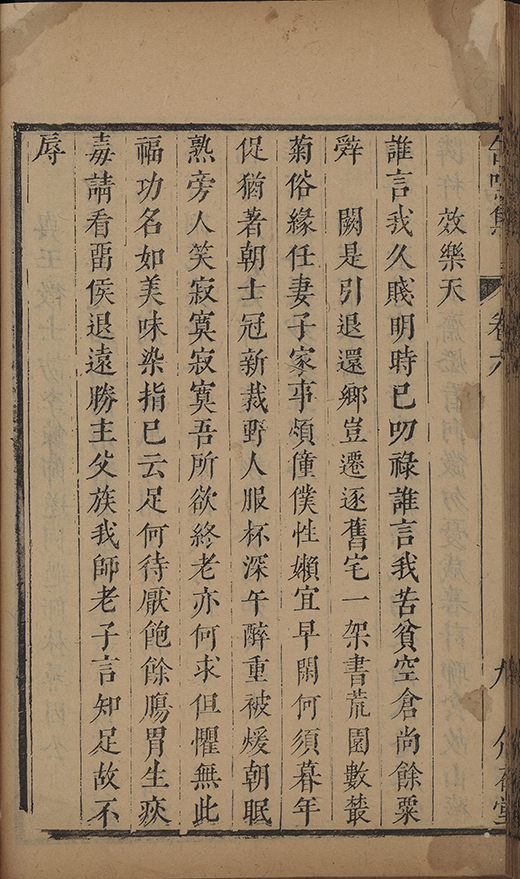 效樂天
誰言我久賤明時已叨祿誰言我苦貧空倉尚餘粟
辤闕是引退還鄉豈遷逐舊宅一架書荒園數叢
菊俗緣任妻子家事煩僮僕性嬾宜早閑何須暮年
促猶著朝士冠新裁野人服杯深午醉重被煖朝眠
熟旁人笑寂寞寂寞吾所欲終老亦何求但懼無此
福功名如美味染指已云足何待厭飽餘膓胃生疾
毒請看畱侯退遠勝主父族我師老子言知足故不
辱
卷六
九